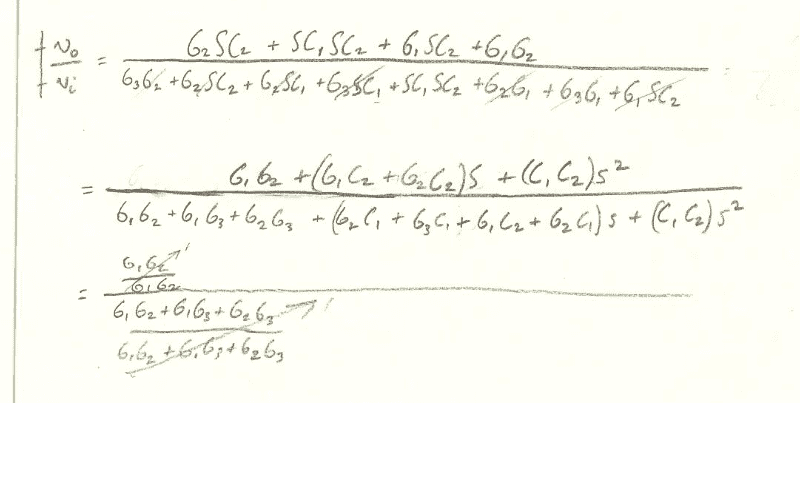 + v₀/vᵢ = (G₂SC₂ + SC₁SC₂ + G₁SC₂ + G₁G₂) / (G₃G₂ + G₂SC₂ + G₂SC₁ + G₃SC₁ + SC₁SC₂ + G₂G₁ + G₃G₁ + G₁SC₂)
= (G₁G₂ + (G₁C₂ + G₂C₂)S + (C₁C₂)s²) / (G₁G₂ + G₁G₃ + G₂G₃ + (G₂C₁ + G₃C₁ + G₁C₂ + G₂C₁)s + (C₁C₂)s²)
= (G₁G₂ / G₁G₂ → 1) / ((G₁G₂ + G₁G₃ + G₂G₃) / (G₁G₂ + G₁G₃ + G₂G₃) → 1)